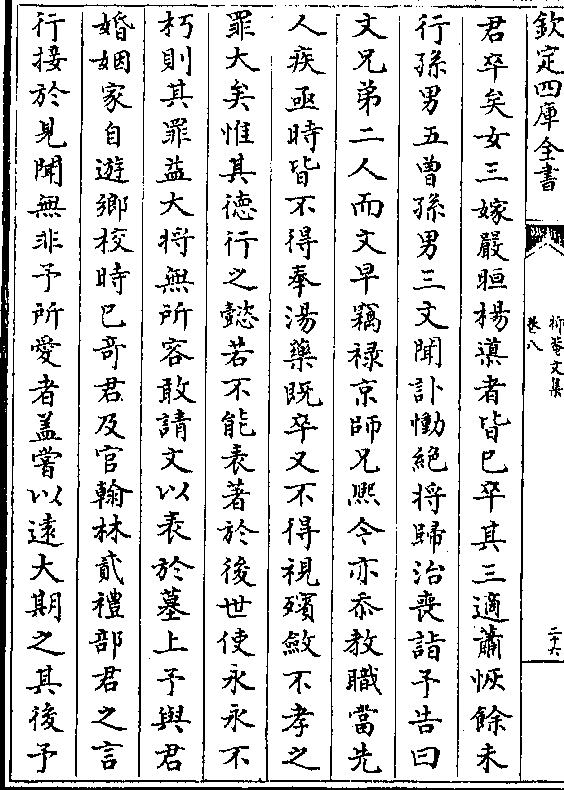 欽定四庫全書
抑菴文集
卷八
二十六
君卒矣女三嫁嚴晅楊謨者皆巳卒其三適蕭恢餘未
行孫男五曾孫男三文聞訃慟絶将歸治喪詣予告曰
文兄弟二人而文早竊禄京師兄熙今亦忝教職當先
人疾亟時皆不得奉湯藥既卒又不得視殯斂不孝之
罪大矣惟其徳行之懿若不能表著於後世使永永不
朽則其罪益大将無所容敢請文以表於墓上予與君
婚姻家自遊鄉校時巳竒君及官翰林貳禮部君之言
行接於見聞無非予所愛者盖嘗以遠大期之其後予